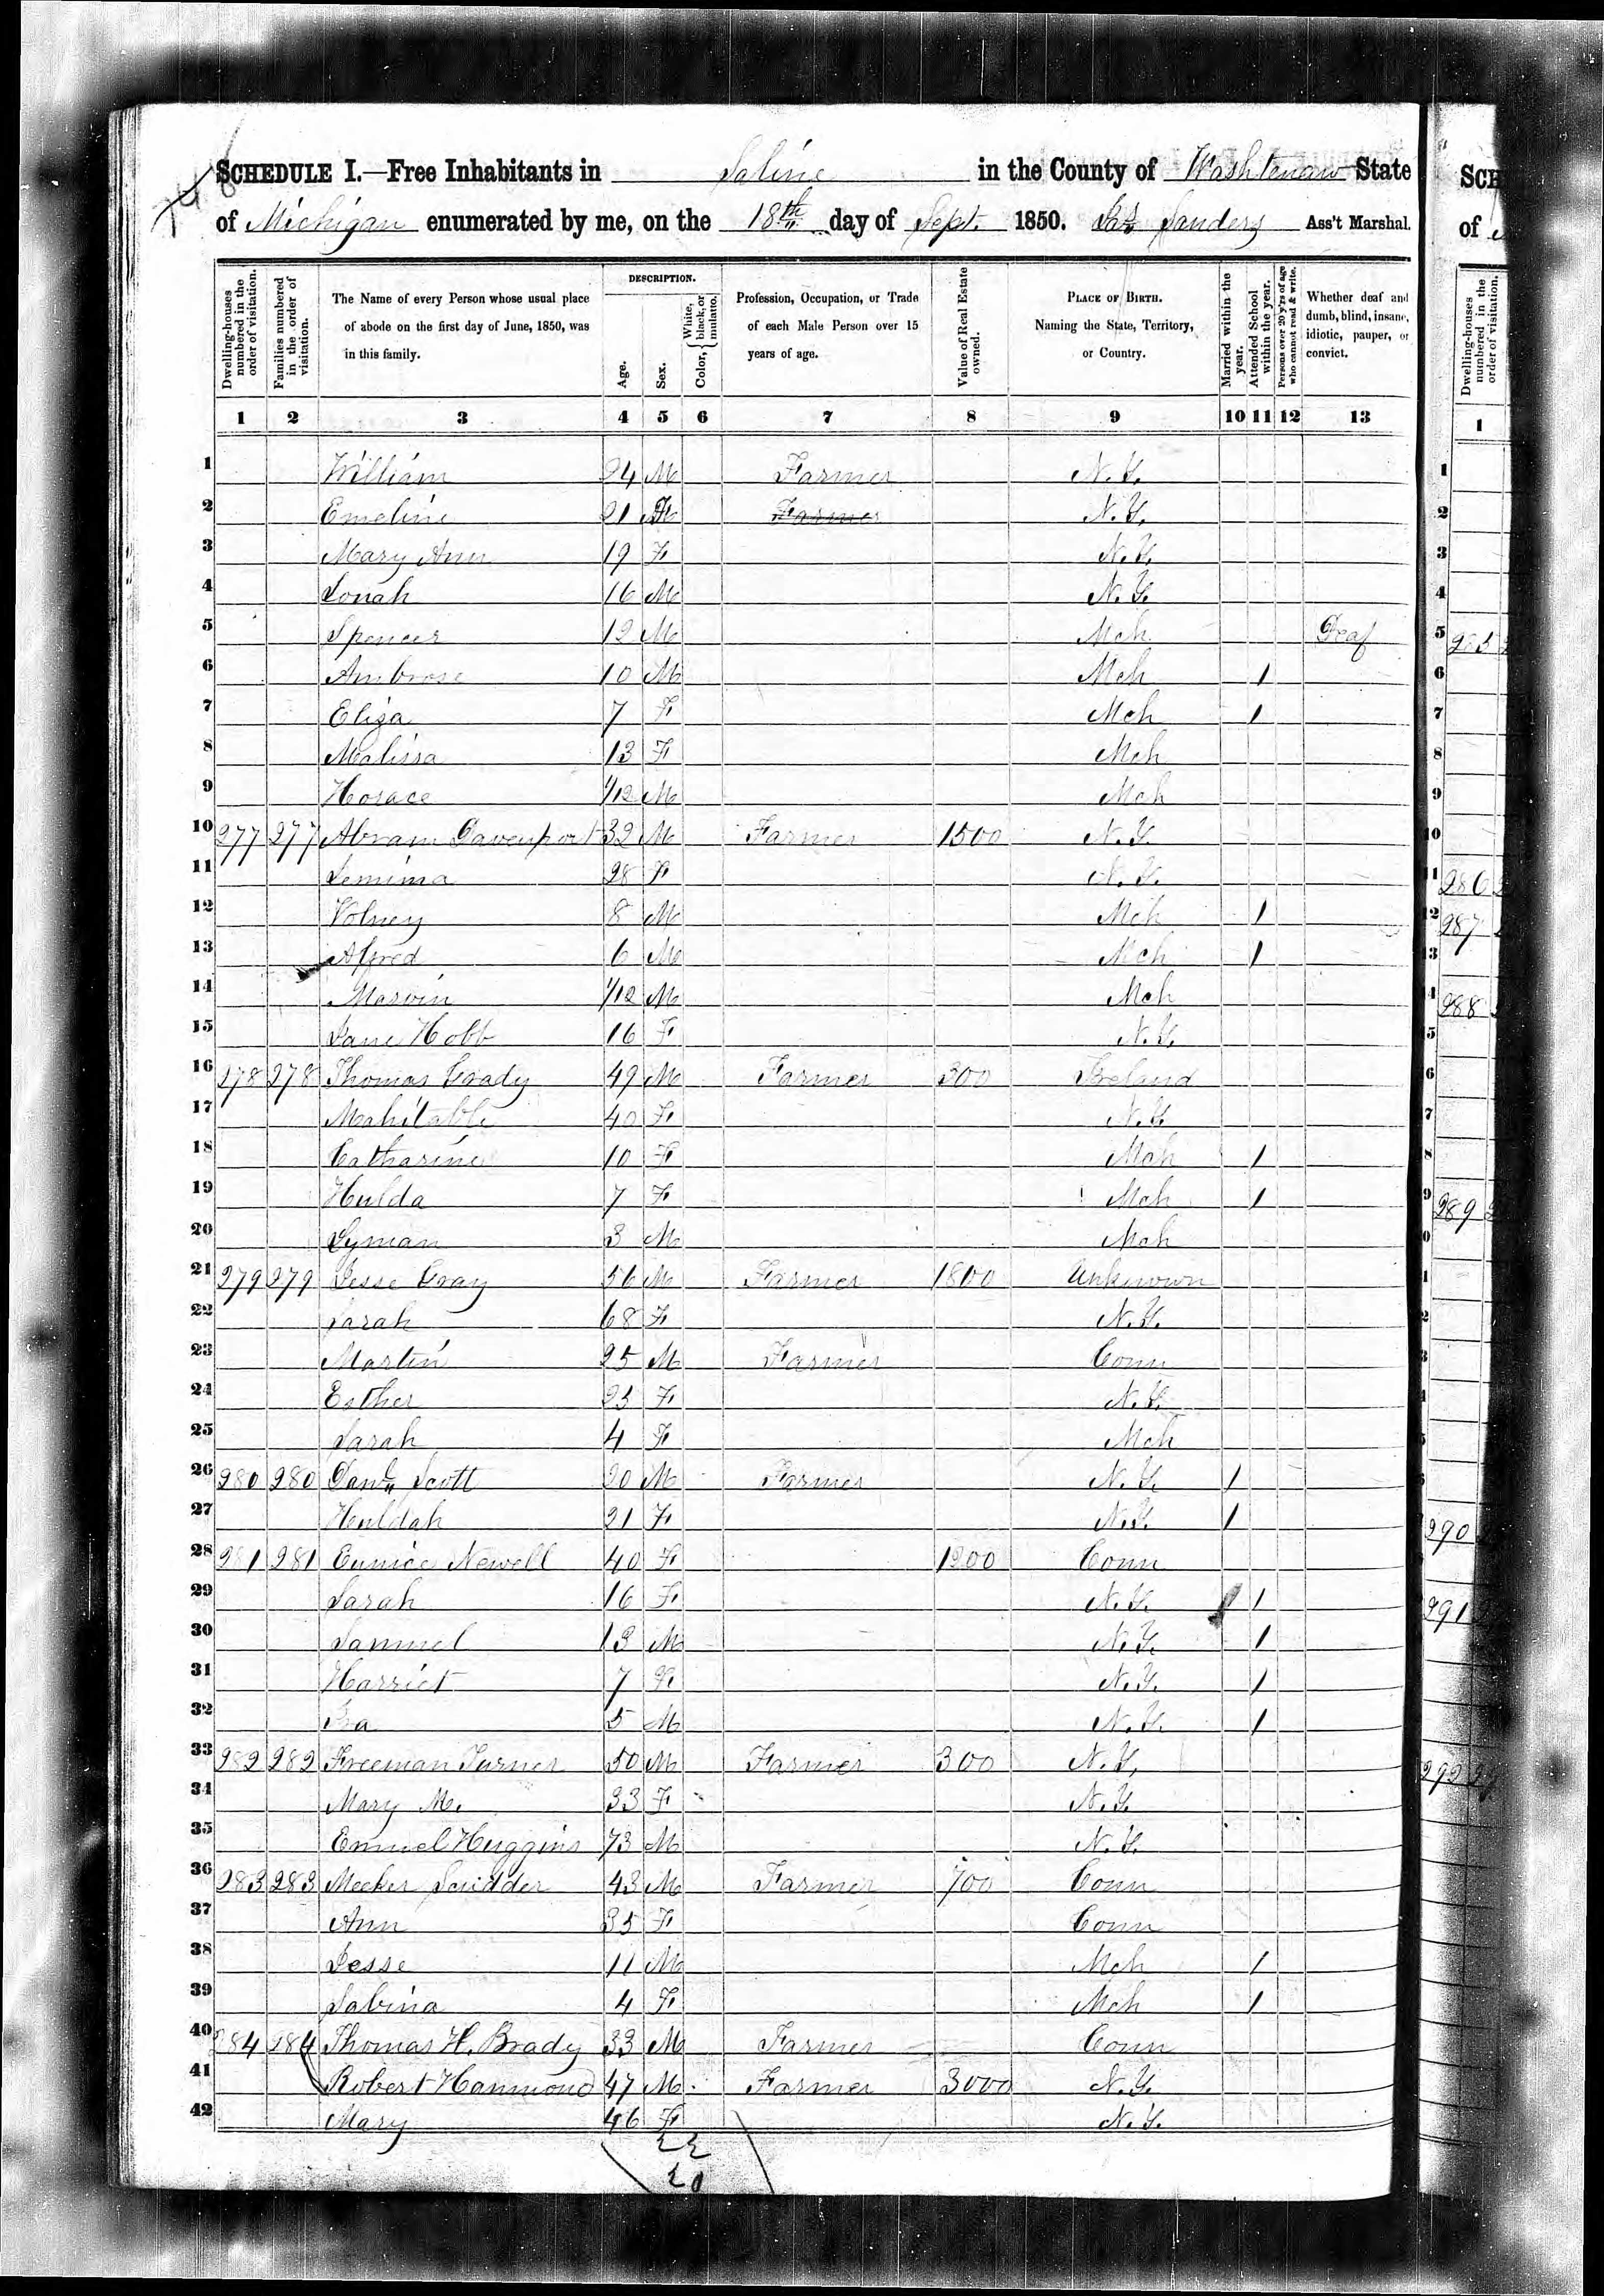 SCHEDULE I.—Free Inhabitants in Saline in the County of Washtenaw State
of Michigan enumerated by me, on the 18th day of Sept. 1850. Sanders Ass't Marshal.
Dwelling-houses numbered in the order of visitation.
Families numbered in the order of visitation.
The Name of every Person whose usual place of abode on the first day of June, 1850, was in this family.
DESCRIPTION.
Age.
Sex.
Color, White, black, or mulatto.
Profession, Occupation, or Trade of each Male Person over 15 years of age.
Value of Real Estate owned.
PLACE OF BIRTH. Naming the State, Territory, or Country.
Married within the year.
Attended School within the year.
Persons over 20 y'rs of age who cannot read & write.
Whether deaf and dumb, blind, insane, idiotic, pauper, or convict.
1 2 3 4 5 6 7 8 9 10 11 12 13
1 William 24 M Farmer N.Y.
2 Emeline 21 F Farmer N.Y.
3 Mary Ann 19 F N.Y.
4 Jonah 16 M N.Y.
5 Spencer 12 M Mch Deaf
6 Ambrose 10 M Mch 1
7 Eliza 7 F Mch 1
8 Malissa 13 F Mch
9 Horace 1/12 M Mch
10 277 277 Abram Davenport 32 M Farmer 1500 N.Y.
11 Jemima 28 F N.Y.
12 Volney 8 M Mch 1
13 Alfred 6 M Mch 1
14 Marvin 1/12 M Mch
15 Jane Hobb 16 F N.Y.
16 278 278 Thomas Coady 49 M Farmer 300 Ireland
17 Mahitable 40 F N.Y.
18 Catharine 10 F Mch 1
19 Hulda 7 F Mch 1
20 Lyman 3 M Mch
21 279 279 Jesse Gray 56 M Farmer 1800 Unknown
22 Sarah 68 F N.Y.
23 Martin 25 M Farmer Conn
24 Esther 23 F N.Y.
25 Sarah 4 F Mch
26 280 280 Danl Scott 20 M Farmer N.Y. 1
27 Huldah 21 F N.Y. 1
28 281 281 Eunice Newell 40 F 1200 Conn
29 Sarah 16 F N.Y. 1
30 Samuel 13 M N.Y. 1
31 Harriet 7 F N.Y. 1
32 Ira 5 M N.Y. 1
33 282 282 Freeman Turner 50 M Farmer 300 N.Y.
34 Mary M. 33 F N.Y.
35 Emuel Huggins 73 M N.Y.
36 283 283 Meeker Scudder 43 M Farmer 700 Conn
37 Ann 35 F Conn
38 Jesse 11 M Mch 1
39 Sabina 4 F Mch 1
40 284 284 Thomas H. Brady 33 M Farmer Conn
41 Robert Hammond 47 M Farmer 3000 N.Y.
42 Mary 46 F N.Y.
22
20